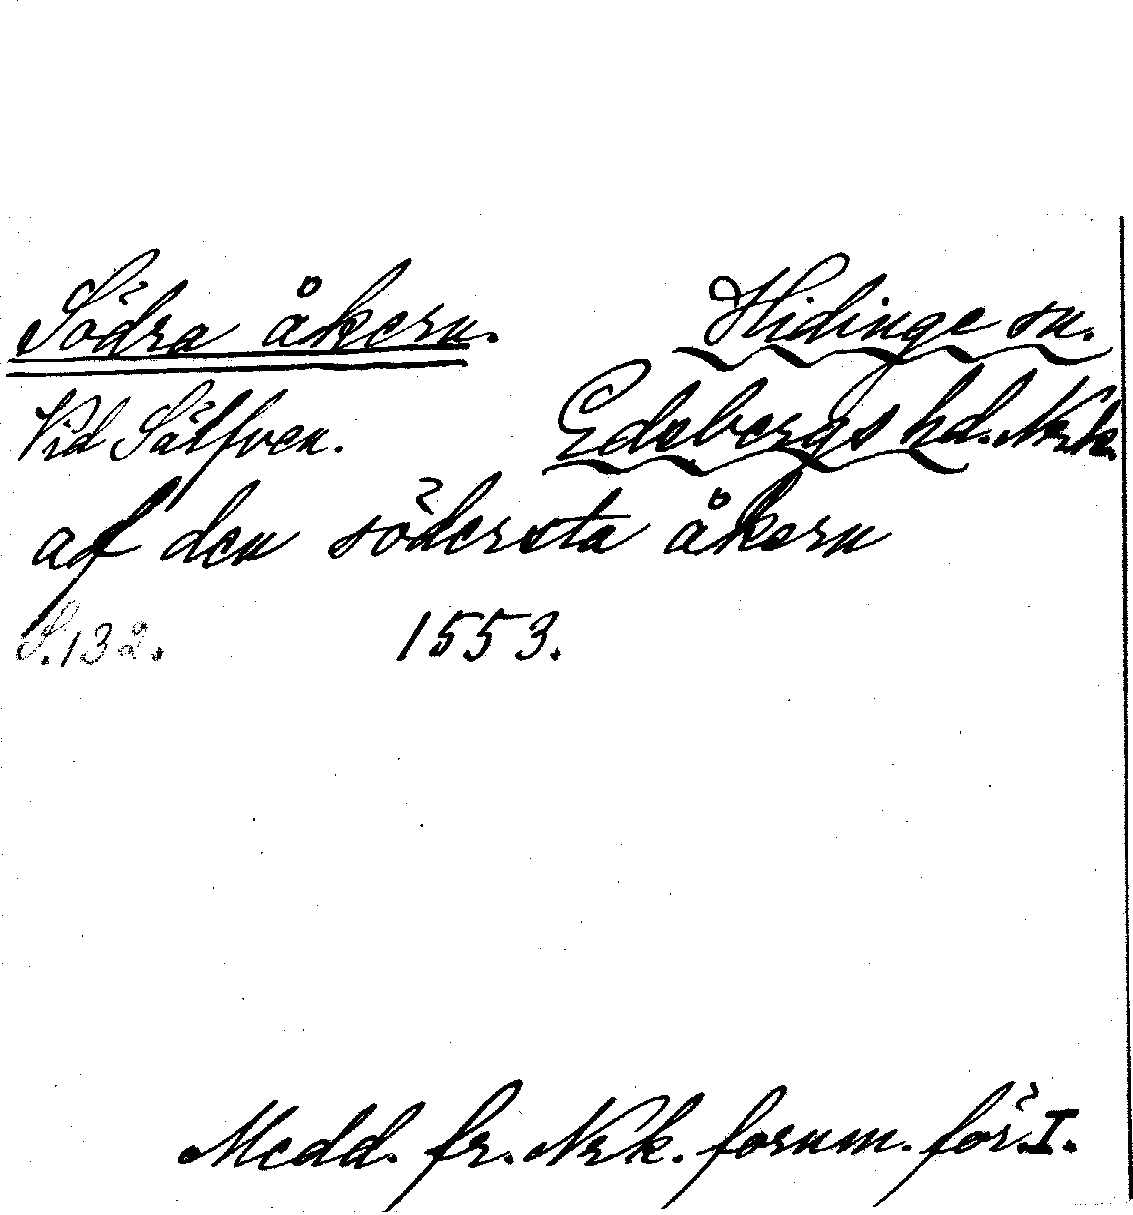 Södra åkern. Hidinge sn.
Vid Sälfven. Edsbergs hd. Nrk.
af den södersta åkern
S. 132. 1553.
Medd. fr. Nrk. fornm. för. I.